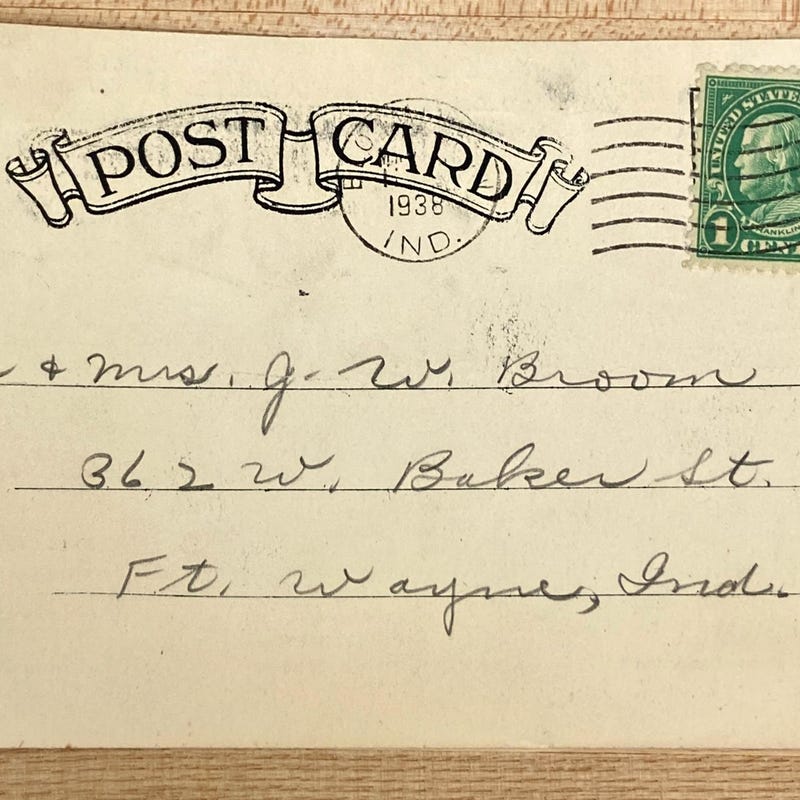 POST CARD
1938
IND.
UNITED STATES
FRANKLIN
1 CENT
& Mrs. J. W. Broom
362 W. Baker St.
Ft. Wayne, Ind.